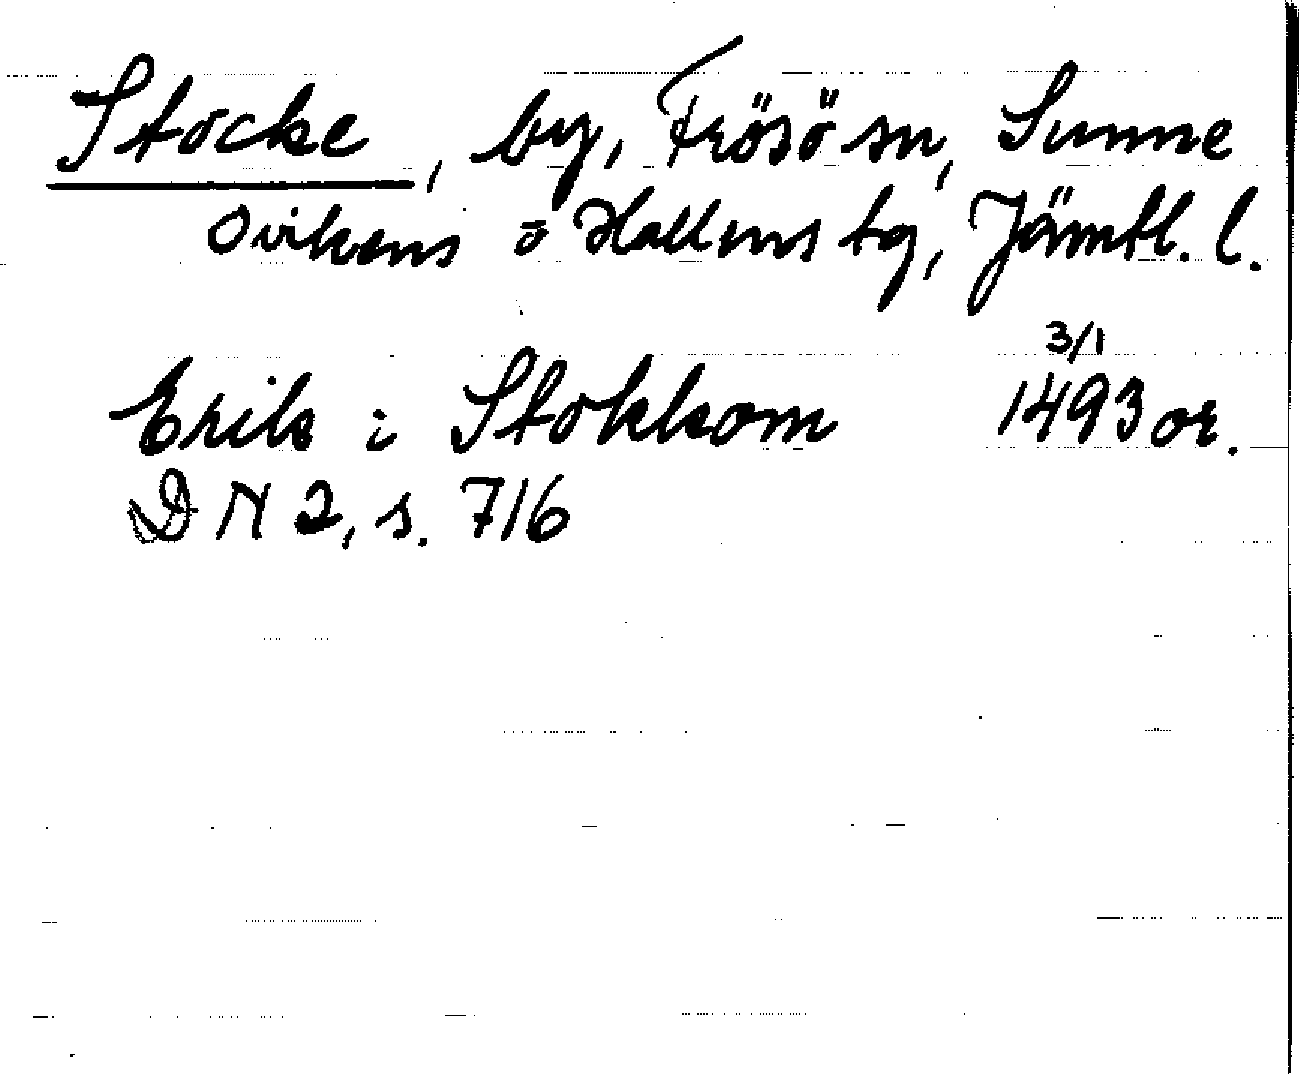 Stocke, by, Frösö sn, Sunne
Ovikens o Hallens tg, Jämtl. l.
3/1
Erik i Stokkom 1493 or.
DN 2, s. 716